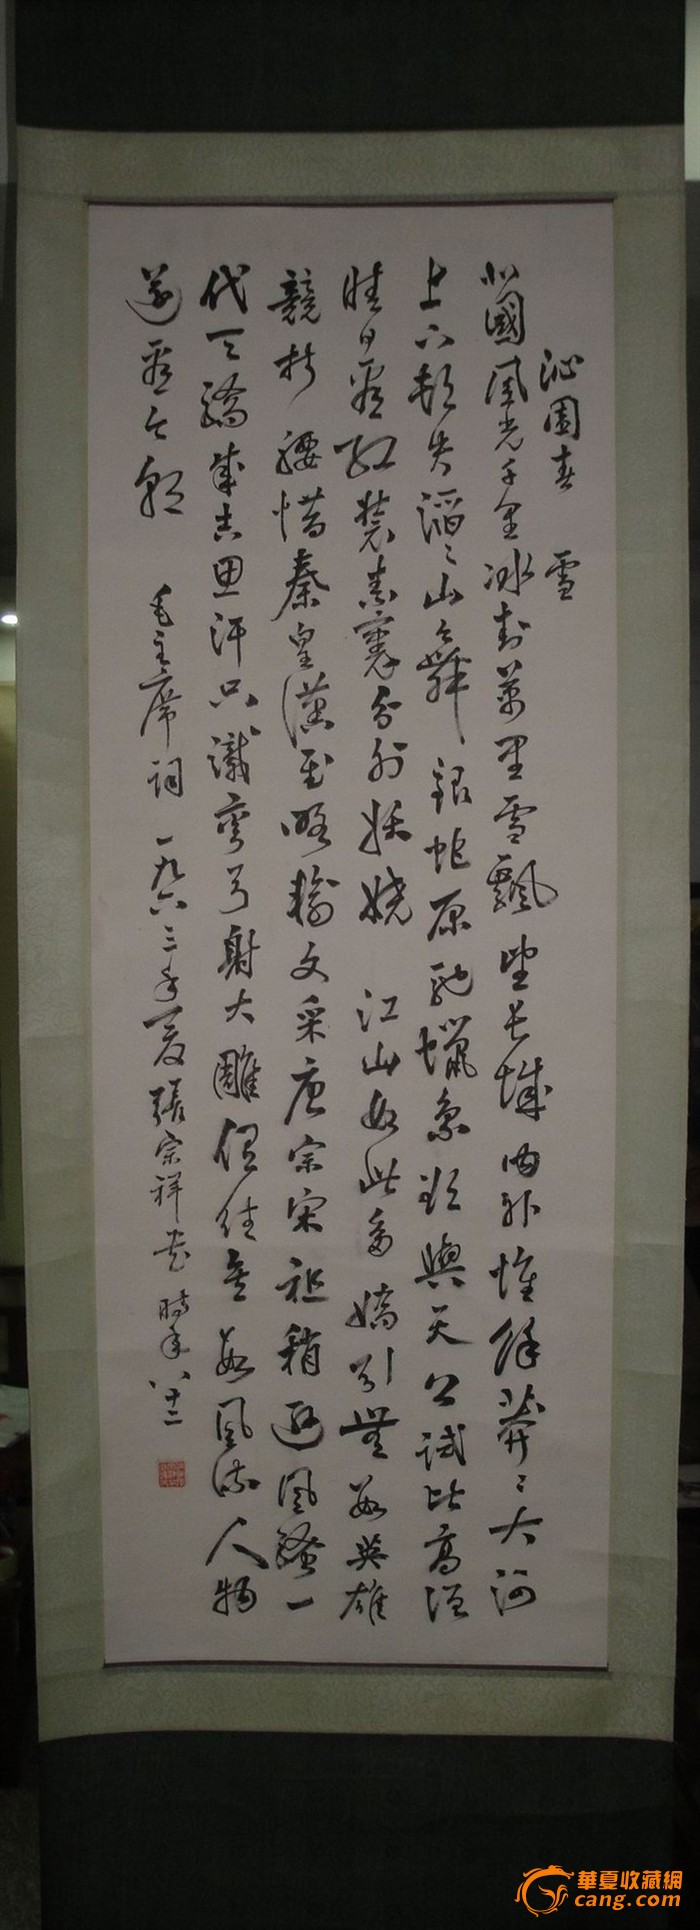 沁園春 雪
北國風光千里冰封萬里雪飄望長城內外惟餘莽〻大河
上下頓失滔〻山舞銀蛇原馳蠟象欲與天公試比高須
晴日看紅裝素裹分外妖嬈 江山如此多嬌引無數英雄
競折腰惜秦皇漢武略輸文采唐宗宋祖稍遜風騷一
代天驕成吉思汗只識彎弓射大雕俱往矣數風流人物
還看今朝 毛主席詞 一九六三年夏張宗祥書 時年八十二
華夏收藏網
cang.com